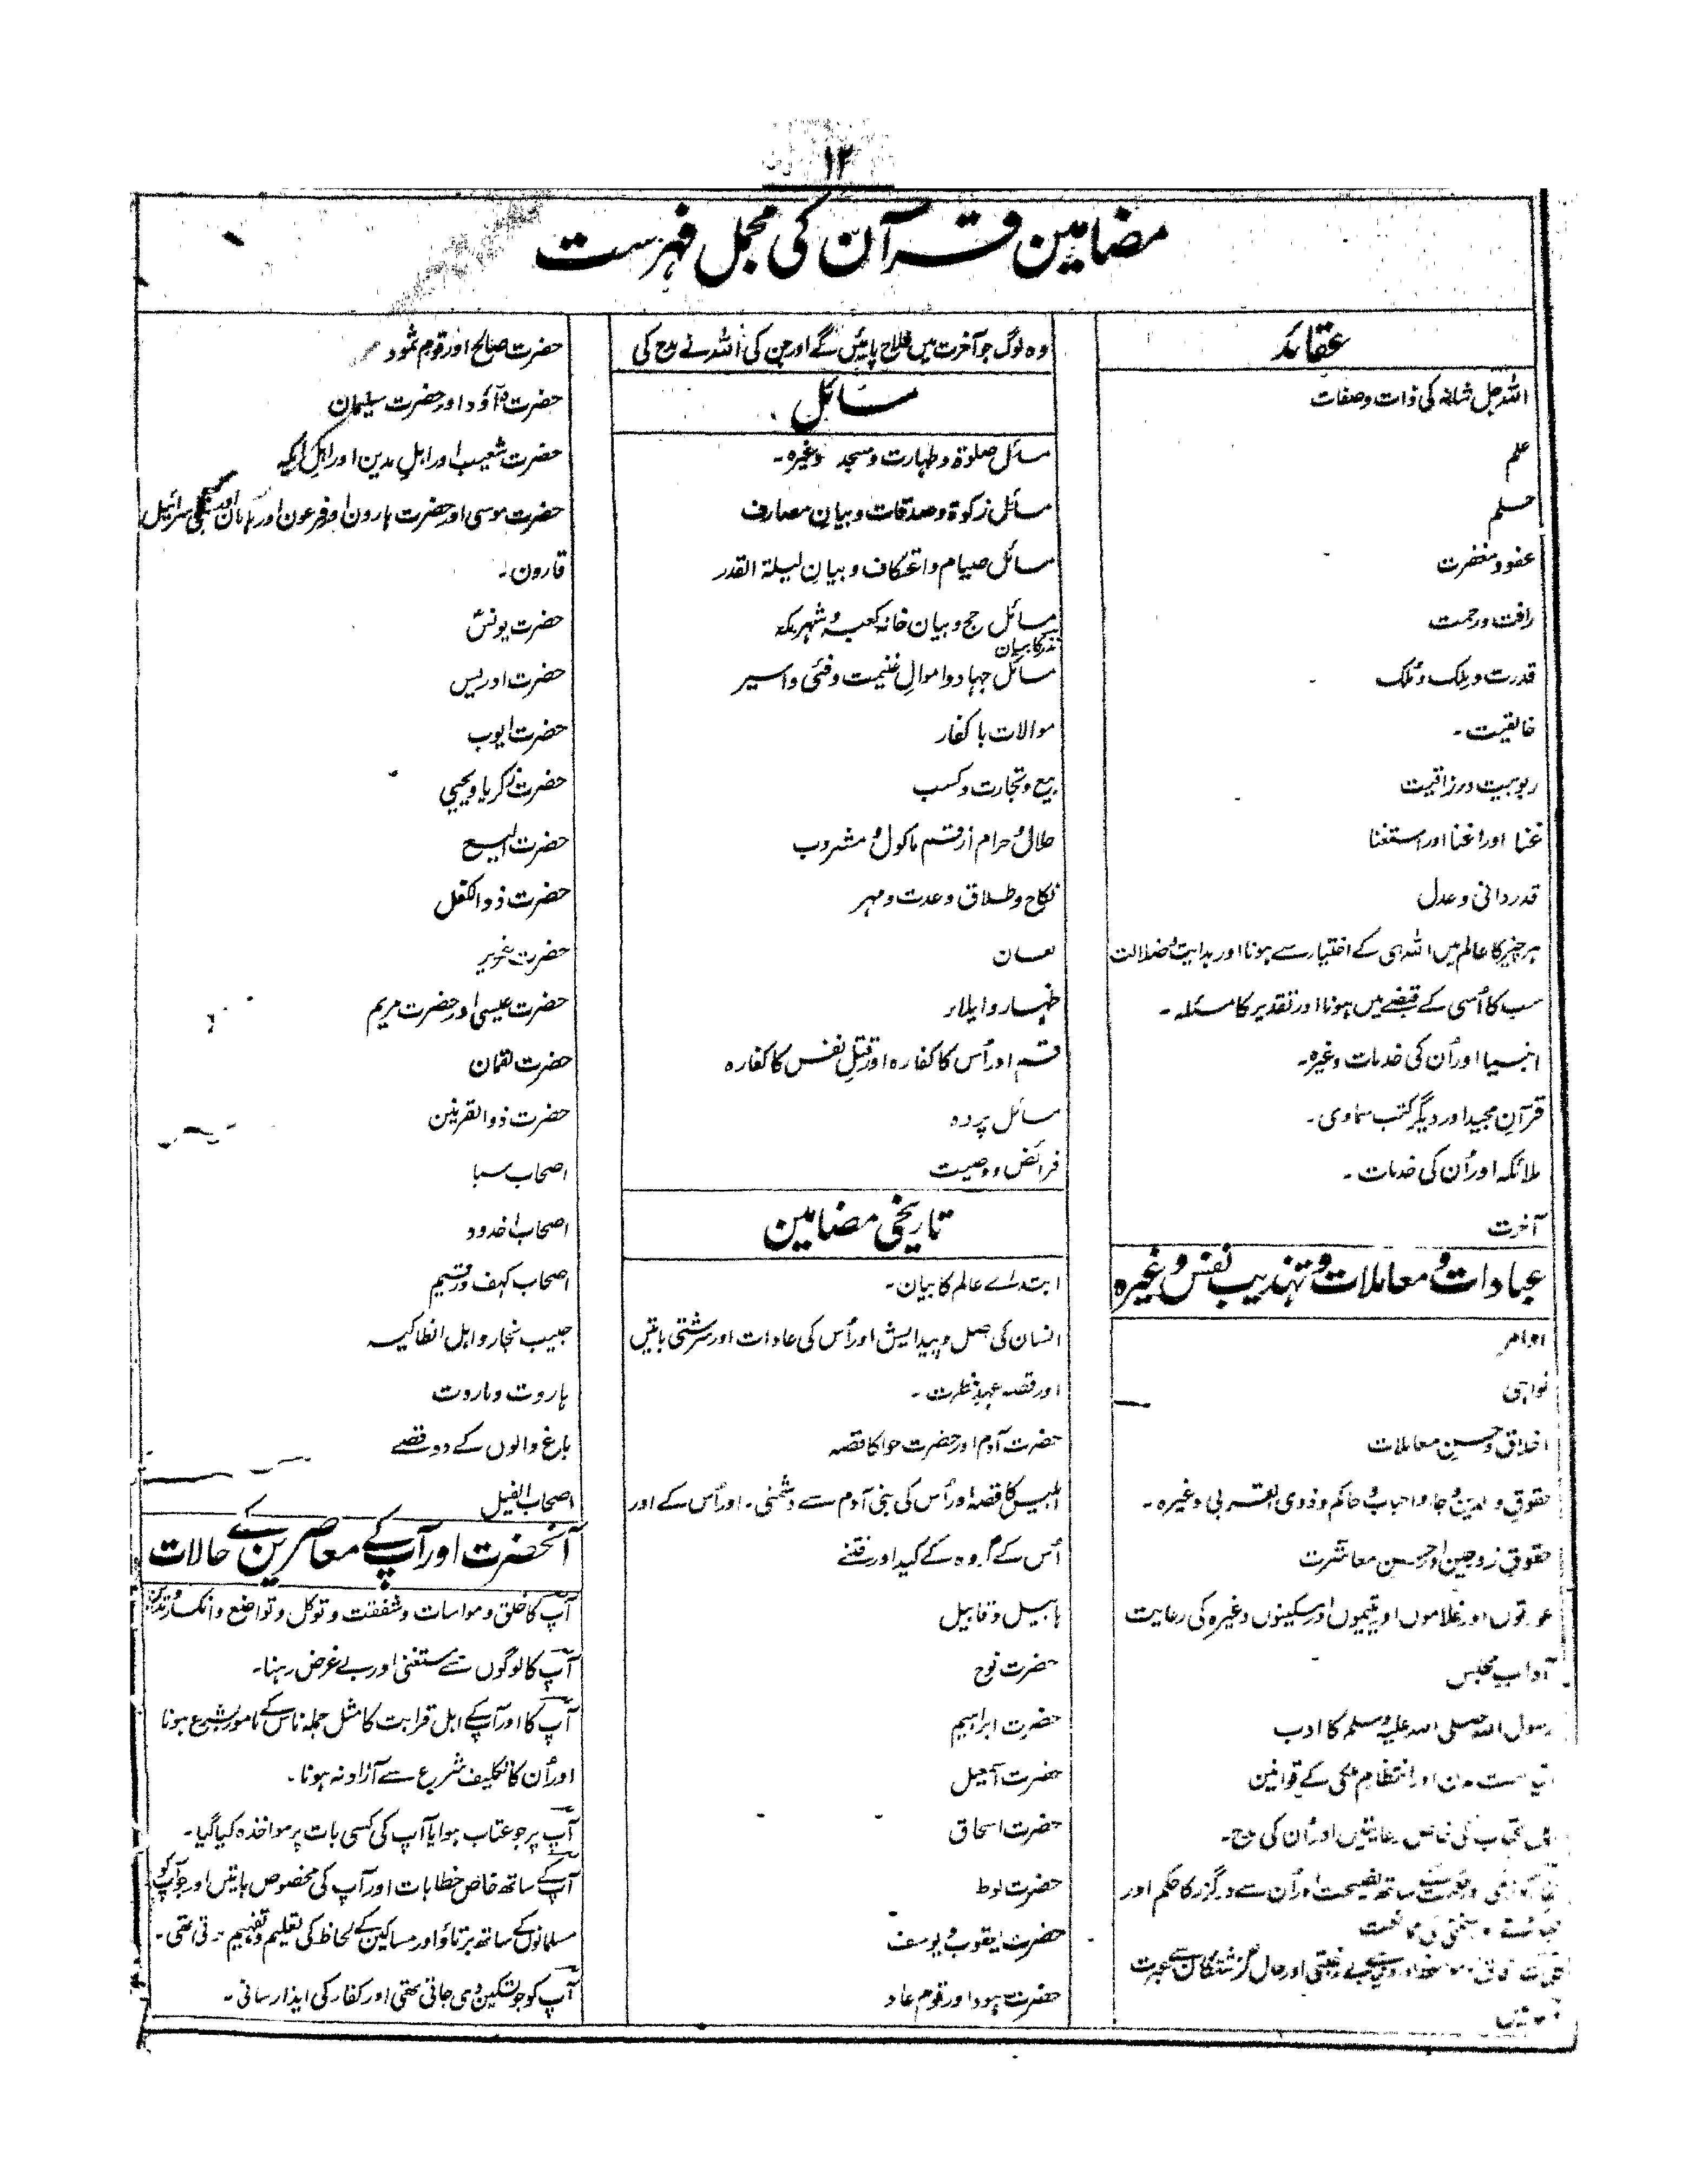 ۱۲
مضامین قرآن کی مجمل فہرست
عقائد
اللہ جل شانہ کی ذات و صفات
علم
حلم
عفو و مغفرت
رافت و رحمت
قدرت و مِلک و مُلک
خالقیت ۔
ربوبیت و رزاقیت
غنا اور اغنا اور استغنا
قدردانی و عدل
ہر چیز کا عالم میں اللہ ہی کے اختیار سے ہونا اور ہدایت و ضلالت
سب کا اُسی کے قبضے میں ہونا اور تقدیر کا مسئلہ ۔
انبیا اور اُن کی خدمات وغیرہ ۔
قرآنِ مجید اور دیگر کتب سماوی ۔
ملائکہ اور اُن کی خدمات ۔
آخرت
عبادات و معاملات و تہذیب نفس وغیرہ
اوامر
نواہی
اخلاق و حسنِ معاملات
حقوقِ والدین و جار و احباب و حاکم و ذوی القربیٰ وغیرہ ۔
حقوقِ زوجین و حسنِ معاشرت
عورتوں اور غلاموں اور یتیموں اور مسکینوں وغیرہ کی رعایت
آدابِ مجلس
رسول اللہ صلی اللہ علیہ وسلم کا ادب
اور انتظامِ ملکی کے قوانین
کی خاص رعایتیں اور اُن کی مدح ۔
ساتھ نصیحت اور اُن سے درگزر کا حکم اور
سختی کی ممانعت
بے رغبتی اور حال گزشتگان سے عبرت
وہ لوگ جو آخرت میں فلاح پائیں گے اور جن کی اللہ نے مدح کی
مسائل
مسائل صلوٰۃ و طہارت و مسجد وغیرہ ۔
مسائل زکوٰۃ و صدقات و بیان مصارف
مسائل صیام و اعتکاف و بیانِ لیلۃ القدر
مسائل حج و بیان خانہ کعبہ و شہر مکہ
نذر کا بیان
مسائل جہاد و اموالِ غنیمت و فئی و اسیر
موالات با کفار
بیع و تجارت و کسب
حلال و حرام از قسم ماکول و مشروب
نکاح و طلاق و عدت و مہر
لعان
ظہار و ایلاء
قسم اور اُس کا کفارہ اور قتلِ نفس کا کفارہ
مسائل پردہ
فرائض و وصیت
تاریخی مضامین
ابتداے عالم کا بیان ۔
انسان کی اصل و پیدایش اور اُس کی عادات اور سرشتی باتیں
اور قصہ عہدِ فطرت ۔
حضرت آدم اور حضرت حوا کا قصہ
ابلیس کا قصہ اور اُس کی بنی آدم سے دشمنی ۔ اور اُس کے اور
اُس کے گروہ کے کید اور فتنے
ہابیل و قابیل
حضرت نوح
حضرت ابراہیم
حضرت اسمٰعیل
حضرت اسحاق
حضرت لوط
حضرت یعقوب و یوسف
حضرت ہود اور قوم عاد
حضرت صالح اور قوم ثمود
حضرت داؤد اور حضرت سلیمان
حضرت شعیب اور اہلِ مدین اور اہلِ ایکہ
حضرت موسی اور حضرت ہارون اور فرعون اور ہامان اور بنی اسرائیل
قارون ۔
حضرت یونسؑ
حضرت ادریس
حضرت ایوب
حضرت زکریا و یحییٰ
حضرت الیسع
حضرت ذوالکفل
حضرت عُزیر
حضرت عیسیٰ اور حضرت مریم
حضرت لقمان
حضرت ذوالقرنین
اصحاب سبا
اصحاب اخدود
اصحاب کہف و رقیم
حبیب نجار و اہل انطاکیہ
ہاروت و ماروت
باغ والوں کے دو قصے
اصحاب الفیل
آنحضرت اور آپ کے معاصرین کے حالات
آپ کا خلق و مواسات و شفقت و توکل و تواضع و انکسار
آپ کا لوگوں سے مستغنی اور بے غرض رہنا ۔
آپ کا اور آپ کے اہل قرابت کا مثل جملہ ناس کے مامور بشرع ہونا
اور اُن کا تکلیف شرع سے آزاد نہ ہونا ۔
آپ پر جو عتاب ہوا یا آپ کی کسی بات پر مواخذہ کیا گیا ۔
آپ کے ساتھ خاص خطابات اور آپ کی مخصوص باتیں اور جو آپ کو
مسلمانوں کے ساتھ برتاؤ اور مساکین کے لحاظ کی تعلیم و تفہیم ہوتی تھی ۔
آپ کو جو تسکین دی جاتی تھی اور کفار کی ایذا رسانی ۔